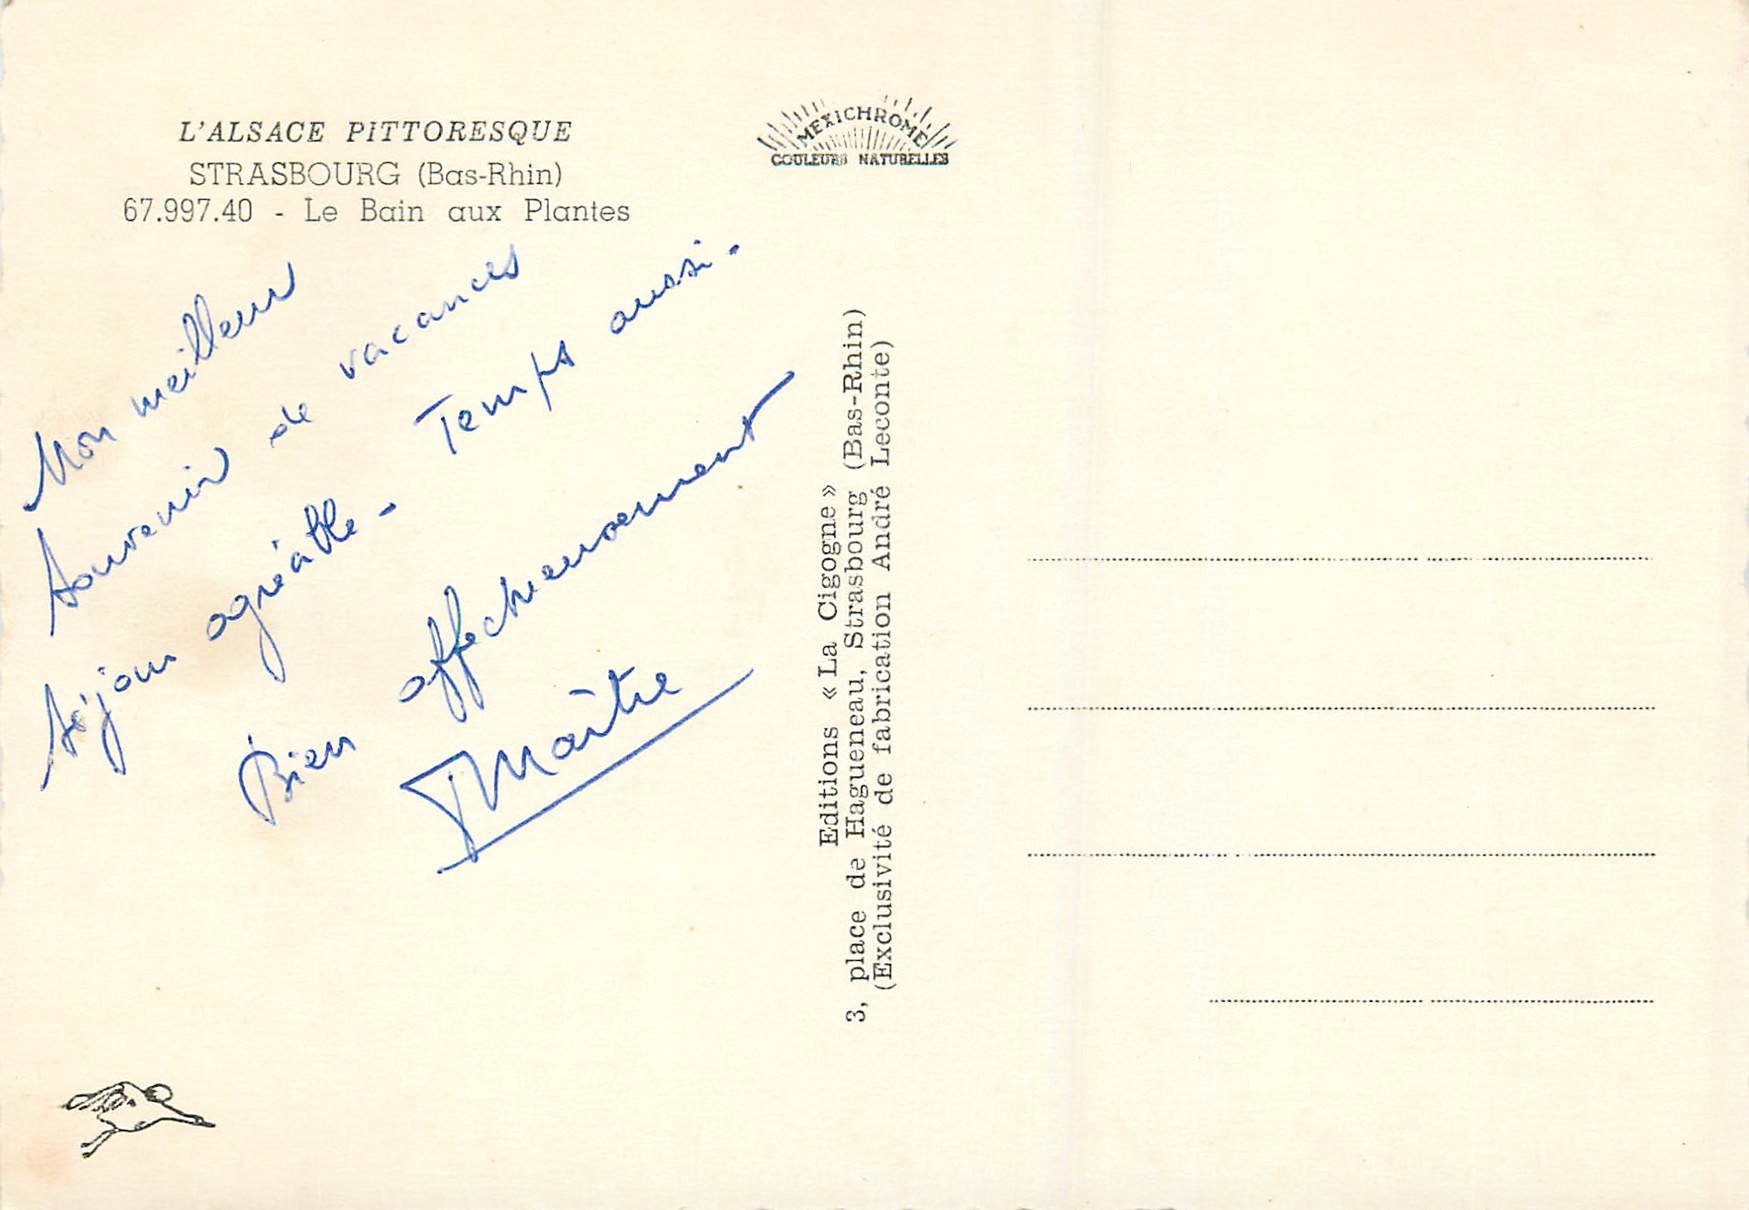 L'ALSACE PITTORESQUE
STRASBOURG (Bas-Rhin)
67.997.40 - Le Bain aux Plantes
MEXICHROME
COULEURS NATURELLES
Mon meilleur
souvenir de vacances
séjour agréable - Temps aussi.
Bien affectueusement
Maître
Editions «La Cigogne»
3, place de Hagueneau, Strasbourg (Bas-Rhin)
(Exclusivité de fabrication André Leconte)